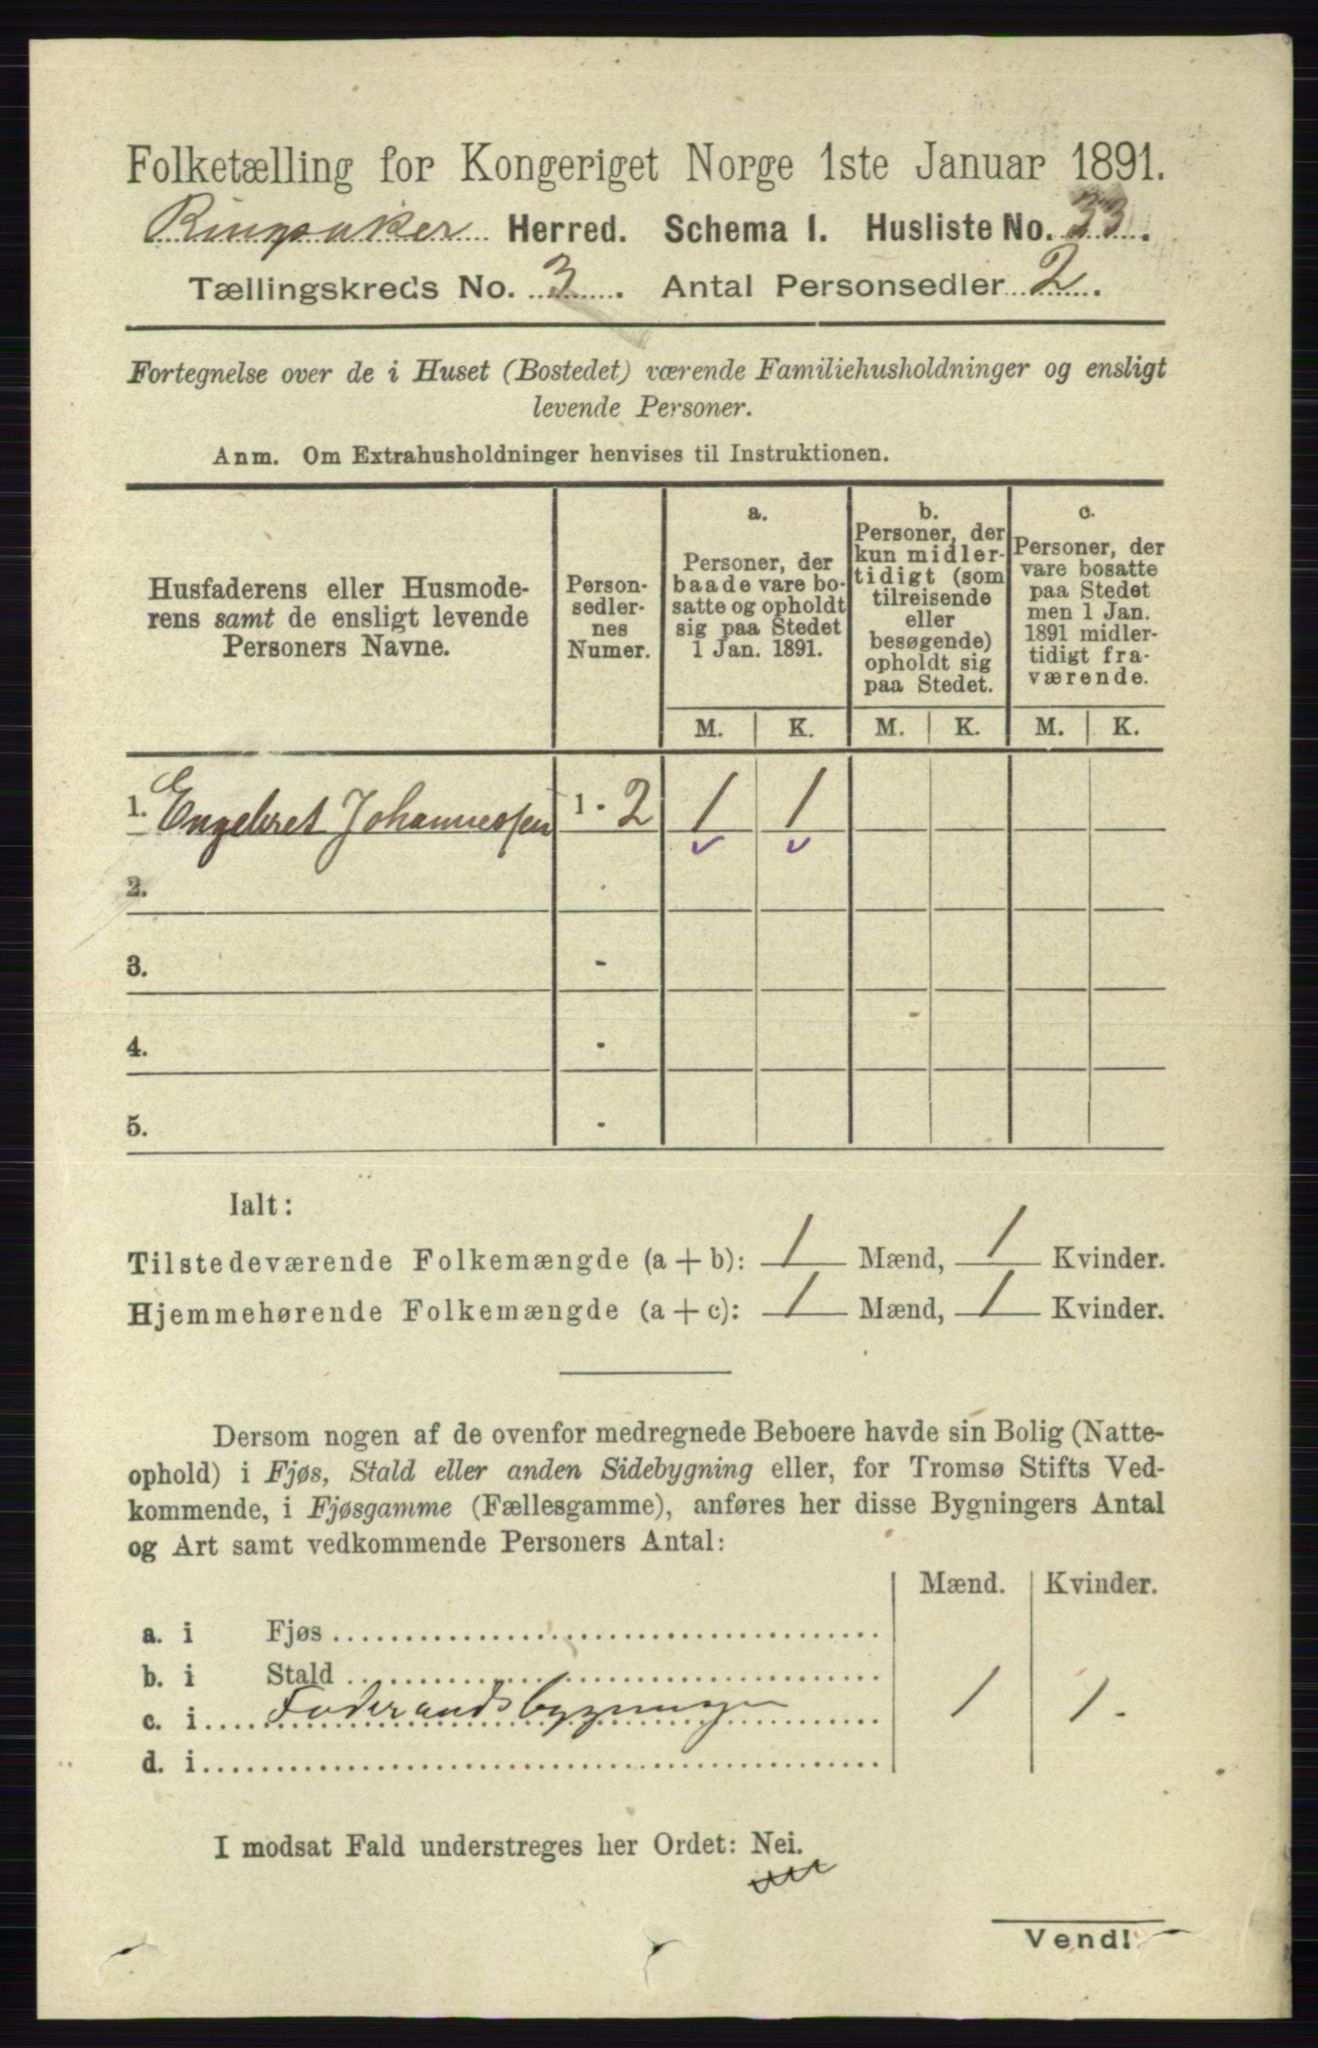 Folketælling for Kongeriget Norge 1ste Januar 1891.
Ringsaker Herred. Schema I. Husliste No. 33.
Tællingskreds No. 3. Antal Personsedler 2.
Fortegnelse over de i Huset (Bostedet) værende Familiehusholdninger og ensligt
levende Personer.
Anm. Om Extrahusholdninger henvises til Instruktionen.
Husfaderens eller Husmode-
rens samt de ensligt levende
Personers Navne.
Person-
sedler-
nes
Numer.
a.
Personer, der
baade vare bo-
satte og opholdt
sig paa Stedet
1 Jan. 1891.
b.
Personer, der
kun midler-
tidigt (som
tilreisende
eller
besøgende)
opholdt sig
paa Stedet.
c.
Personer, der
vare bosatte
paa Stedet
men 1 Jan.
1891 midler-
tidigt fra-
værende.
M. K. M. K. M. K.
1. Engebret Johannessen 1 - 2 1 1
2.
3. -
4. -
5. -
Ialt:
Tilstedeværende Folkemængde (a + b): 1 Mænd, 1 Kvinder.
Hjemmehørende Folkemængde (a + c): 1 Mænd, 1 Kvinder.
Dersom nogen af de ovenfor medregnede Beboere havde sin Bolig (Natte-
ophold) i Fjøs, Stald eller anden Sidebygning eller, for Tromsø Stifts Ved-
kommende, i Fjøsgamme (Fællesgamme), anføres her disse Bygningers Antal
og Art samt vedkommende Personers Antal:
Mænd. Kvinder.
a. i Fjøs
b. i Stald
c. i Føderaadsbygningen 1 1.
d. i
I modsat Fald understreges her Ordet: Nei.
Vend!